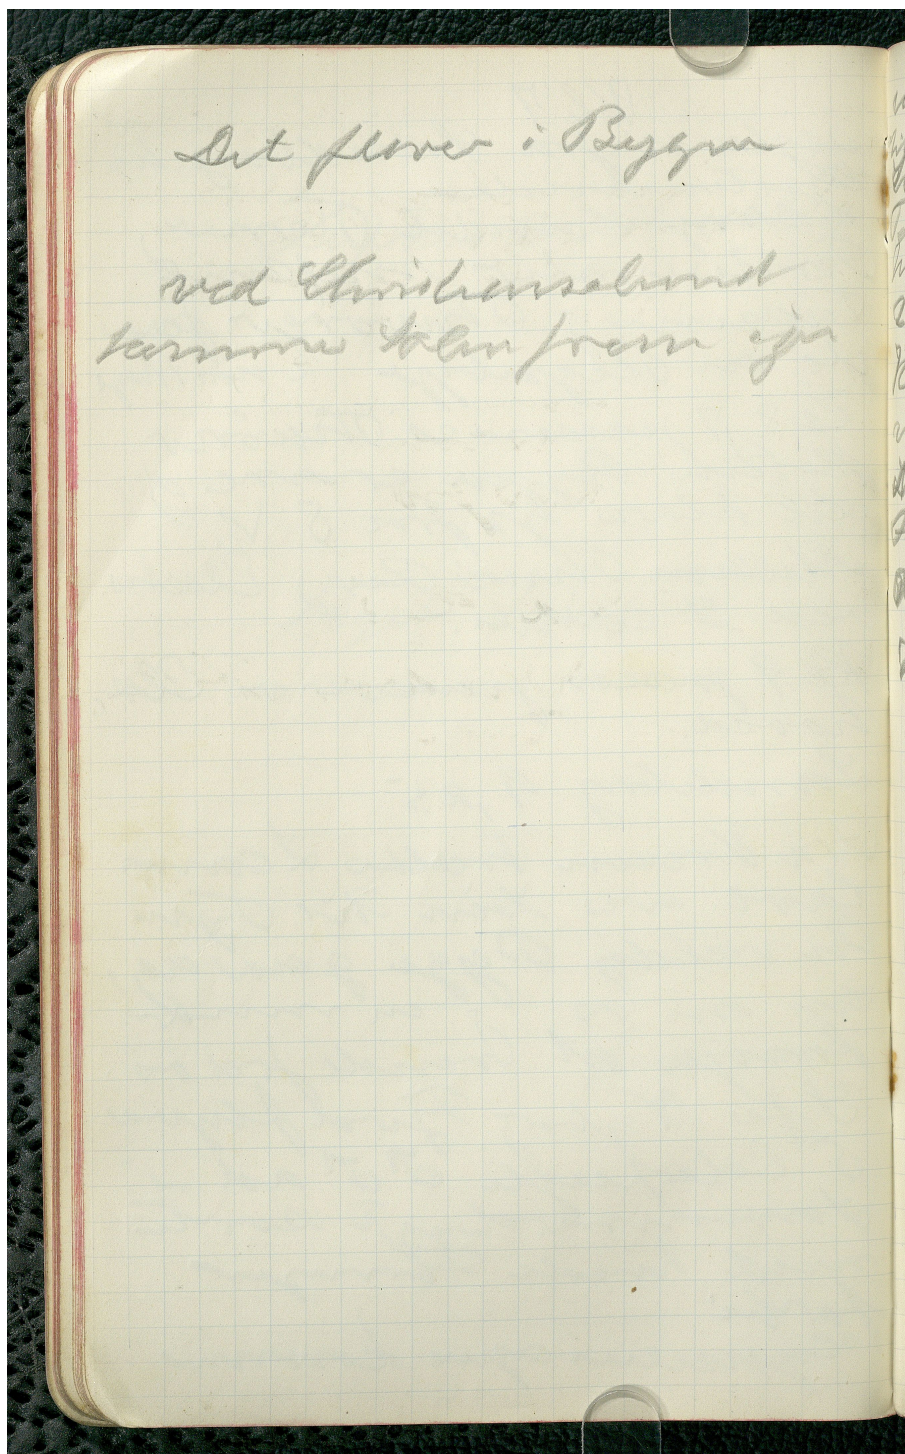 Det flover i Byggen
ved Christianssalund
kommer Solen frem igen